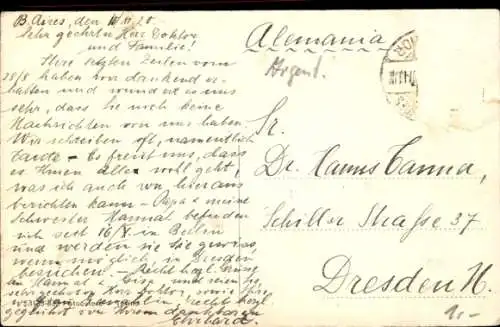 B. Aires, den 10.11.20.
Sehr geehrter Herr Doktor
und Familie!
Ihre letzten Zeilen vom
28/8 haben wir dankend er-
halten und wundert es uns
sehr, dass Sie noch keine
Nachrichten von uns haben
Wir schreiben oft, namentlich
Tante - Es freut uns, dass
es Ihnen allen wohl geht,
was ich auch von hier aus
berichten kann - Papa & meine
Schwester Hannal befinden
sich seit 16/X. in Berlin
und werden sie Sie gewiss,
wenn möglich, in Dresden
besuchen. - Recht herzl. Grüsse
von Hannal,
sehr geehrter Herr Doktor, sowie Ihre
recht herzl.
gegrüsst von Ihrem dankbaren
Erhard.
Alemania
Argent.
Sr.
Dr. Hanns Canna,
Schiller Strasse 37
Dresden N.